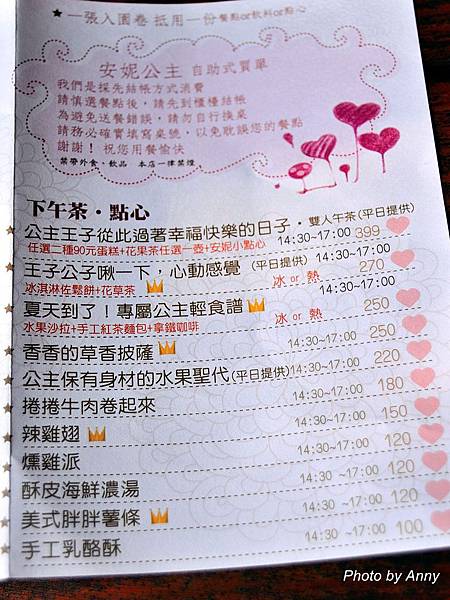 ★一張入園卷 抵用一份餐點or飲料or點心
安妮公主 自助式買單
我們是採先結帳方式消費
請慎選餐點後，請先到櫃檯結帳
為避免送餐錯誤，請勿自行換桌
請務必確實填寫桌號，以免耽誤您的餐點
謝謝！祝您用餐愉快
禁帶外食、飲品 本店一律禁煙
下午茶・點心
公主王子從此過著幸福快樂的日子・雙人午茶(平日提供)
任選二種90元蛋糕+花果茶任選一壺+安妮小點心 14:30~17:00 399
王子公子啾一下，心動感覺 (平日提供) 14:30~17:00
冰淇淋佐鬆餅+花草茶 冰 or 熱 270
夏天到了！專屬公主輕食譜 14:30~17:00
水果沙拉+手工紅茶麵包+拿鐵咖啡 冰 or 熱 250
香香的草香披薩 14:30~17:00 250
公主保有身材的水果聖代(平日提供) 14:30~17:00 220
捲捲牛肉卷起來 14:30~17:00 180
辣雞翅 14:30~17:00 150
燻雞派 14:30~17:00 120
酥皮海鮮濃湯 14:30~17:00 120
美式胖胖薯條 14:30~17:00 120
手工乳酪酥 14:30~17:00 100
Photo by Anny